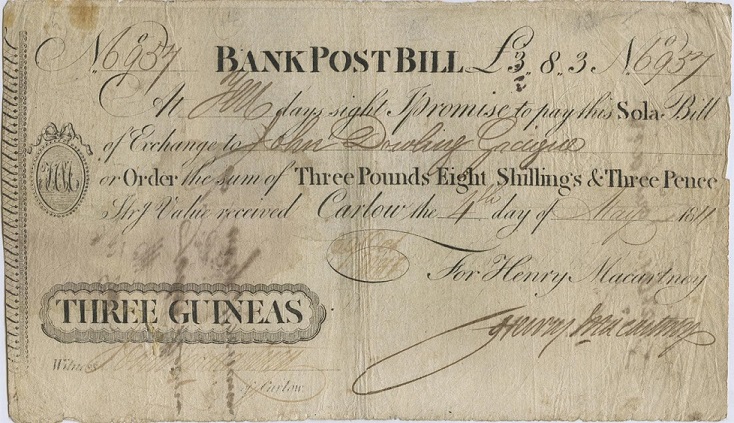 No. 6937 BANK POST BILL £3.8.3 No. 6937
At Ten days sight I promise to pay this Sola Bill
of Exchange to John Dowling Graigue
or Order the sum of Three Pounds Eight Shillings & Three Pence
Strg Value received Carlow the 4th day of May 1811
For Henry Macartney
HM
THREE GUINEAS
Henry Macartney
Witness
of Carlow